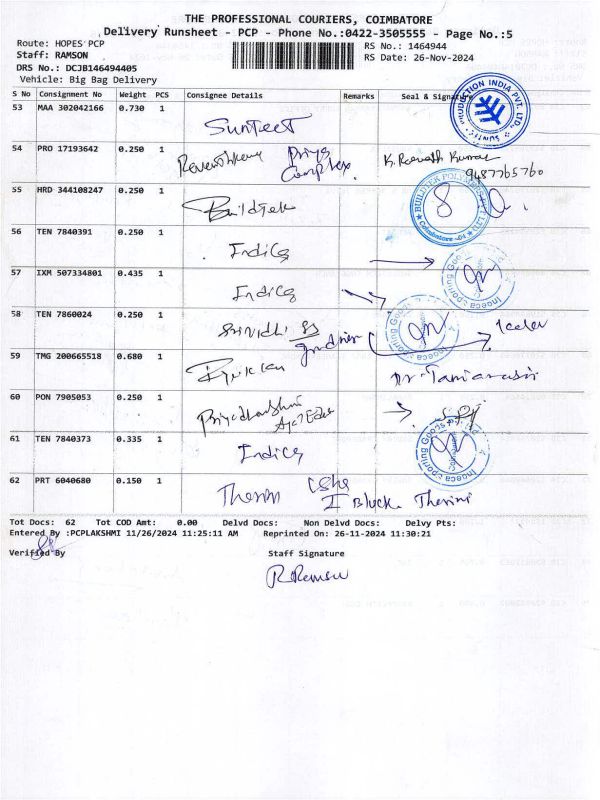 THE PROFESSIONAL COURIERS, COIMBATORE
Delivery Runsheet - PCP - Phone No.:0422-3505555 - Page No.:5
Route: HOPES PCP RS No.: 1464944
Staff: RAMSON RS Date: 26-Nov-2024
DRS No.: DCJB146494405
Vehicle: Big Bag Delivery
S No Consignment No Weight PCS Consignee Details Remarks Seal & Signature
53 MAA 302042166 0.730 1 Sunteet
54 PRO 17193642 0.250 1 Priya Complex K. Kumar 9487765760
55 HRD 344108247 0.250 1 Buildtek
56 TEN 7840391 0.250 1 Indica
57 IXM 507334801 0.435 1 Indica
58 TEN 7860024 0.250 1 Srividhi
59 TMG 200665518 0.680 1
60 PON 7905053 0.250 1
61 TEN 7840373 0.335 1 Indica
62 PRT 6040680 0.150 1 I Block
Tot Docs: 62 Tot COD Amt: 0.00 Delvd Docs: Non Delvd Docs: Delvy Pts:
Entered By :PCPLAKSHMI 11/26/2024 11:25:11 AM Reprinted On: 26-11-2024 11:30:21
Verified By Staff Signature